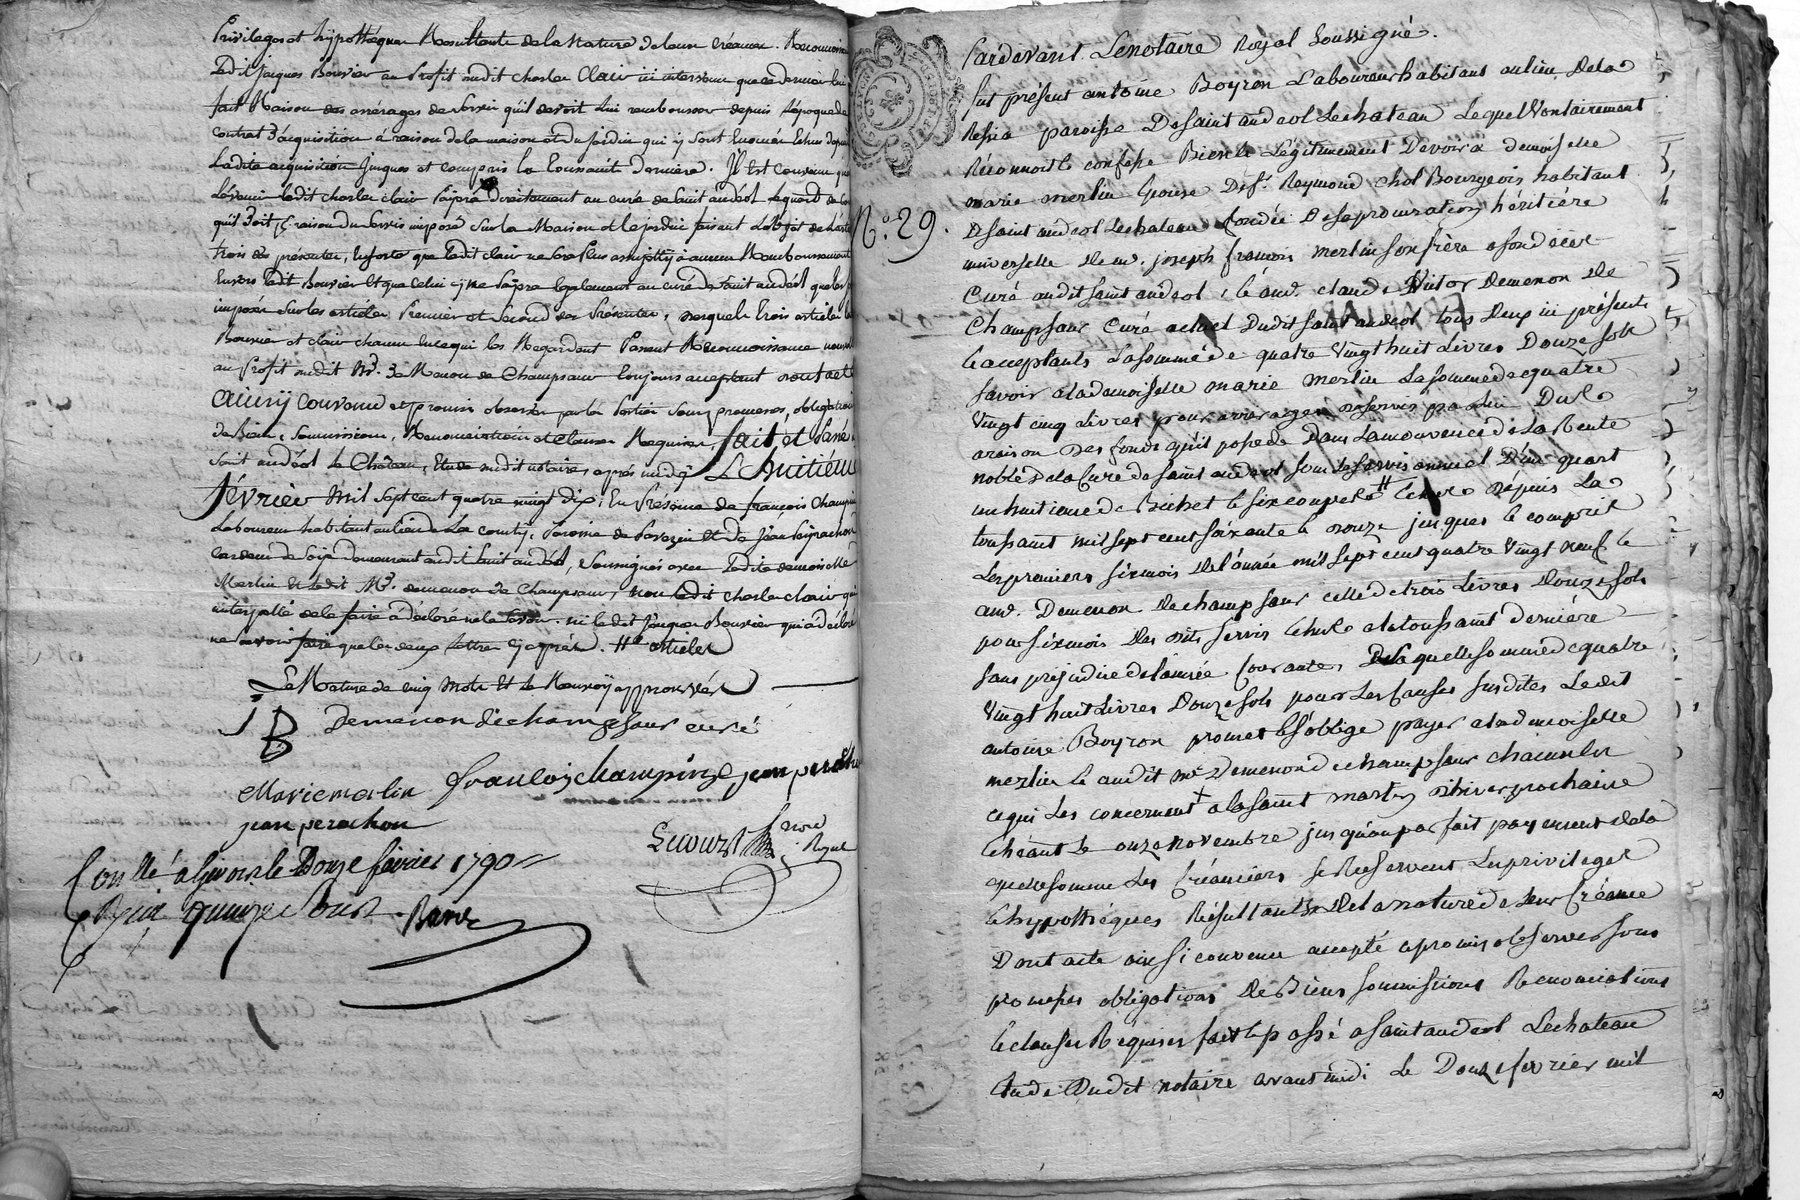 Privileges et hÿpotheques Resultants de la Nature de leurs créances. Reconnoissant
Ledit Jacques Bouvier au Profit dudit charles Clair ici intervenu que ce dernier lui
fait Raison des arrérages de servis qu'il devoit lui rembourser depuis l'époque de
Contrat d'acquisition à raison de la maison et du jardin qui ÿ sont Enoncés Echus depuis
Ladite acquisition Jusques et compris la Toussaint Derniere. Il Est Convenu que
L'avenir ledit charles clair Paÿera Directement au curé de saint andéol le quart de
qu'il Doit à raison du servis imposé Sur la Maison et le jardin faisant L'objet de l'article
trois des présentes, Ensorte que Ledit clair ne sera Plus assujetty à aucun Remboursement
Envers Ledit Bouvier Et que Celui cy ne Paÿera Egalement au curé de saint andéol que les
imposés Sur les articles Premier et Second des Présentes, desquels trois articles les
Bouvier et clair chacun En ce qui les Regardent Passent Reconnoissance nouvelle
au Profit dudit Mr. De Menon de Champsaur toujours acceptant dont acte
Ainsÿ Convenu et promis observer par les Parties sous promesses, obligations
de Biens, soumissions, Renonciations et clauses Requises, fait et Passé à
saint andéol le Château, Etude dudit notaire, après midÿ Le huitième
février Mil sept cent quatre vingt dix, En Présence de françois Champin
Laboureur habitant au lieu de La conty, Paroisse de Savezin Et de Jean Peÿrachon
cardeur de soÿe demeurant audit saint andéol, soussignés avec Ladite demoiselle
Merlin Et Ledit Mr. demenon de Champsaur, non Ledit charles clair qui
interpellé de le faire à déclaré ne le savoir. ni ledit Jacques Bouvier qui à déclaré
ne savoir faire que les deux Lettres cÿ après. # articles
La Rature de cinq mots Et le Renvoÿ approuvés
J B Demenon de champsaur curé
Marie merlin françois champin jean perachon
jean perachon
Lecourt Nore Royal
Con llé a Givors le Douze février 1790
Reçu quinze sous
Par devant Le notaire Royal Soussigné.
fut présent antoine Boyron Laboureur habitant au lieu Dela
Ressia paroisse De Saint andeol Le chateau Lequel Volontairement
Réconnoit & confesse Bien & Legitimement Devoir a demoiselle
marie merlin Epouse De Sr. Reymond Chol Bourgeois habitant
N.o 29.
D saint andeol Le chateau fondée De sa procuration héritière
universelle De mr. joseph françois merlin son frère a son décès
Curé audit saint andeol, & a mr. claude Victor Demenon De
Champsaur Curé actuel Dudit saint andeol tous Deux ici présents
& acceptants La somme de quatre Vingt huit Livres Douze sols
savoir a la demoiselle marie merlin La somme de quatre
Vingt cinq Livres pour arrerages de servis pa Lui Dus
a raison Des fonds qu'il possede Dans La mouvence de La Rente
noble De la Cure de saint andeol sous Le servis annuel D'un quart
un huitieme de Bichet & six coupes # Echus Depuis La
toussaint mil sept cent soixante & onze jusques & compris
Les premiers six mois De l'année mil sept cent quatre Vingt neuf &
a mr. Demenon De champsaur celle de trois Livres Douze sols
pour six mois Des dits servis Echus a la toussaint dernière
sans préjudice de l'année Courante, De La quelle somme de quatre
Vingt huit Livres Douze sols pour Les Causes susdites Ledit
antoine Boyron promet & s'oblige payer a la demoiselle
merlin & audit mr. Demenon de champsaur chacun En
ce qui Les concernent + a la saint martin d'hiver prochaine
Echéant Le onze novembre jusqu'au parfait payement De la
quelle somme Les Créanciers se Réservent Les privileges
& hypotheques Résultants De la nature de Leur Créance
Dont acte ainsi convenu accepté & promis observer sous
promesses obligations De Biens soumissions Renonciations
& clauses Réquises fait & passé a saint andeol Le chateau
Etude Dudit notaire avant midi Le Douze février mil